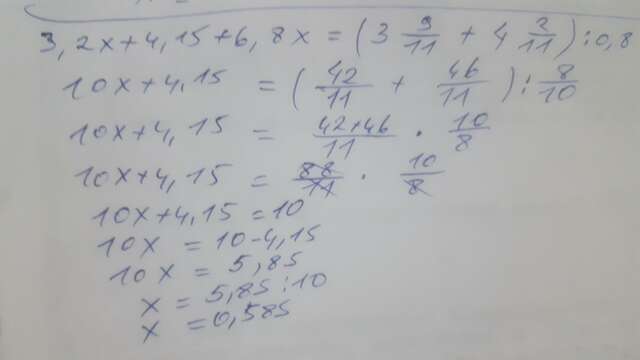 3,2x+4,15+6,8x = (3 9/11 + 4 2/11) : 0,8
10x+4,15 = (42/11 + 46/11) : 8/10
10x+4,15 = 42+46/11 · 10/8
10x+4,15 = 88/11 · 10/8
10x+4,15 = 10
10x = 10-4,15
10x = 5,85
x = 5,85:10
x = 0,585